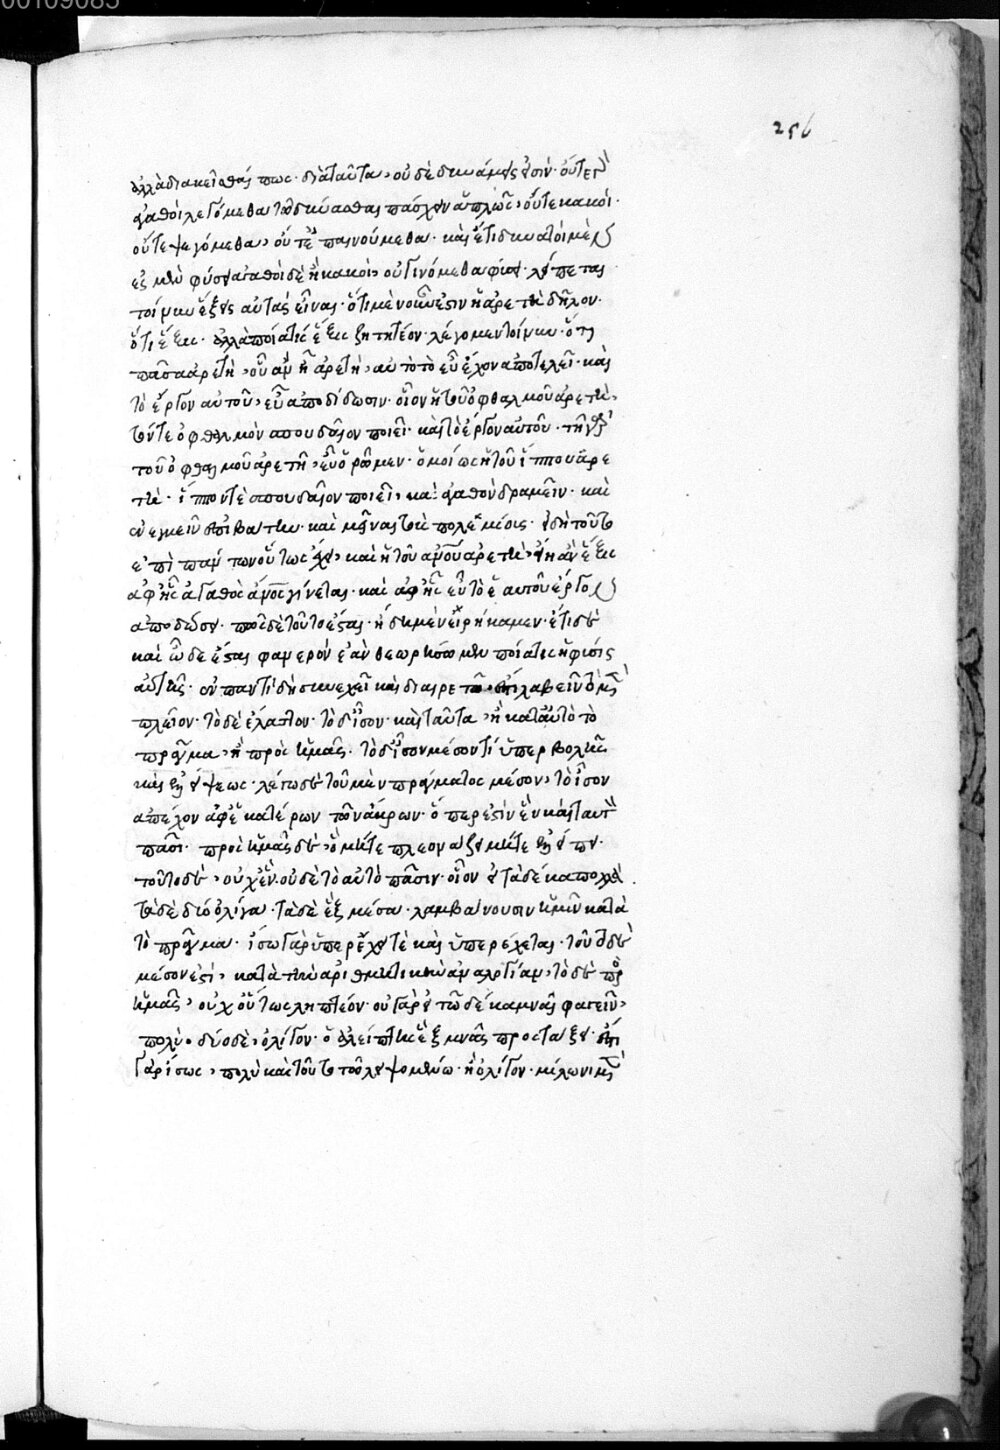 00109085
256
ἀλλὰ διακεῖσθαί πως· διὰ ταῦτα, οὐδὲ δυνάμεις εἰσίν· οὔτε γὰρ
ἀγαθοὶ λεγόμεθα τῶ δύνασθαι πάσχειν ἁπλῶς, οὔτε κακοί·
οὔτε ψεγόμεθα, οὔτε ἐπαινούμεθα· καὶ ἔτι δυνατοὶ μέν
ἐσμεν φύσει ἀγαθοὶ δὲ ἢ κακοὶ, οὐ γινόμεθα φύσει· λείπεται
τοίνυν ἕξεις αὐτὰς εἶναι· ὅτι μὲν οὖν ἐστιν ἡ ἀρετὴ δῆλον·
ὅτι ἕξις· ἀλλὰ ποία τίς ἕξις ζητητέον· λέγομεν τοίνυν· ὅτι
πᾶσα ἀρετὴ, οὗ ἂν ἦ ἀρετὴ, αὐτό τὸ εὖ ἔχον ἀποτελεῖ· καὶ
τὸ ἔργον αὐτοῦ, εὖ ἀποδίδωσιν· οἷον ἡ τοῦ ὀφθαλμοῦ ἀρετὴ,
τόν τε ὀφθαλμὸν σπουδαῖον ποιεῖ· καὶ τὸ ἔργον αὐτοῦ· τῆ γὰρ
τοῦ ὀφθαλμοῦ ἀρετῆ, εὖ ὁρῶμεν· ὁμοίως ἡ τοῦ ἵππου ἀρε
τὴ· ἵππον τὲ σπουδαῖον ποιεῖ, καὶ ἀγαθὸν δραμεῖν· καὶ
ἐνεγκεῖν ἐπιβάτην· καὶ μεῖναι τοὺς πολεμίοις· εἰ δὴ τοῦτο
ἐπὶ πάντων οὕτως ἔχει, καὶ ἡ τοῦ ἀνου ἀρετὴ, εἴη ἂν ἕξις
ἀφ ἧς ἀγαθὸς ἀνος γίνεται· καὶ ἀφ ἧς εὖ τὸ ἑαυτοῦ ἔργον
ἀποδώσει· πῶς δὲ τοῦτο ἔσται· ἤδη μὲν εἰρήκαμεν· ἔτι δὲ
καὶ ὧδε ἔσται φανερὸν ἐὰν θεωρήσωμεν ποία τις ἡ φύσις
αὐτῆς· ἐν παντὶ δὴ συνεχεῖ καὶ διαιρετῶ, ἐπιλαβεῖν τὸ μὲν
πλεῖον· τὸ δὲ ἔλαττον· τὸ δ ἴσον· καὶ ταῦτα, ἢ κατ αὐτὸ τὸ
πρᾶγμα, ἢ πρὸς ἡμᾶς· τὸ δ ἴσον μέσον τί ὑπερβολῆς
καὶ ἐλλείψεως· λέγω δὲ τοῦ μὲν πράγματος μέσον, τὸ ἴσον
ἀπέχον ἀφ ἑκατέρων τῶν ἄκρων· ὅπερ ἐστὶν ἓν καὶ ταυτὸν
πᾶσι· πρὸς ἡμᾶς δὲ, ὃ μήτε πλεονάζει μήτε ἐλλείπει·
τοῦτο δὲ, οὐχ ἓν· οὐδὲ τὸ αὐτὸ πᾶσιν· οἷον εἰ τὰ δέκα πολλὰ
τὰ δὲ δύο ὀλίγα· τὰ δὲ ἓξ μέσα· λαμβάνουσιν ἡμῖν κατὰ
τὸ πρᾶγμα· ἴσω γὰρ ὑπερέχει τὲ καὶ ὑπερέχεται· τοῦτο δὲ
μέσον ἐστὶ, κατὰ τὴν ἀριθμητικὴν ἀναλογίαν, τὸ δὲ πρὸς
ἡμᾶς, οὐχ οὕτως ληπτέον· οὐ γὰρ εἰ τῶ δέκα μνᾶς φαγεῖν,
πολὺ· δύο δὲ, ὀλίγον· ὁ ἀλείπτης ἓξ μνᾶς προστάξει· ἔστι
γὰρ ἴσως, πολὺ καὶ τοῦτο τῶ ληψομένω· ἢ ὀλίγον· μίλωνι μὲν